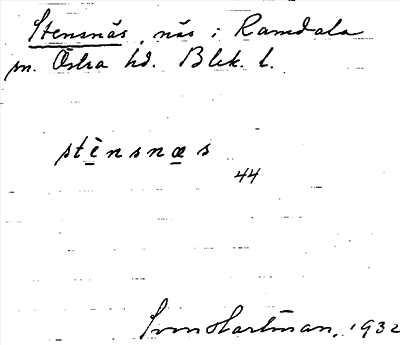 Stensnäs, näs i Ramdala
sn. Östra hd. Blek. l.
stènsnæs
44
Sven Hartman, 1932